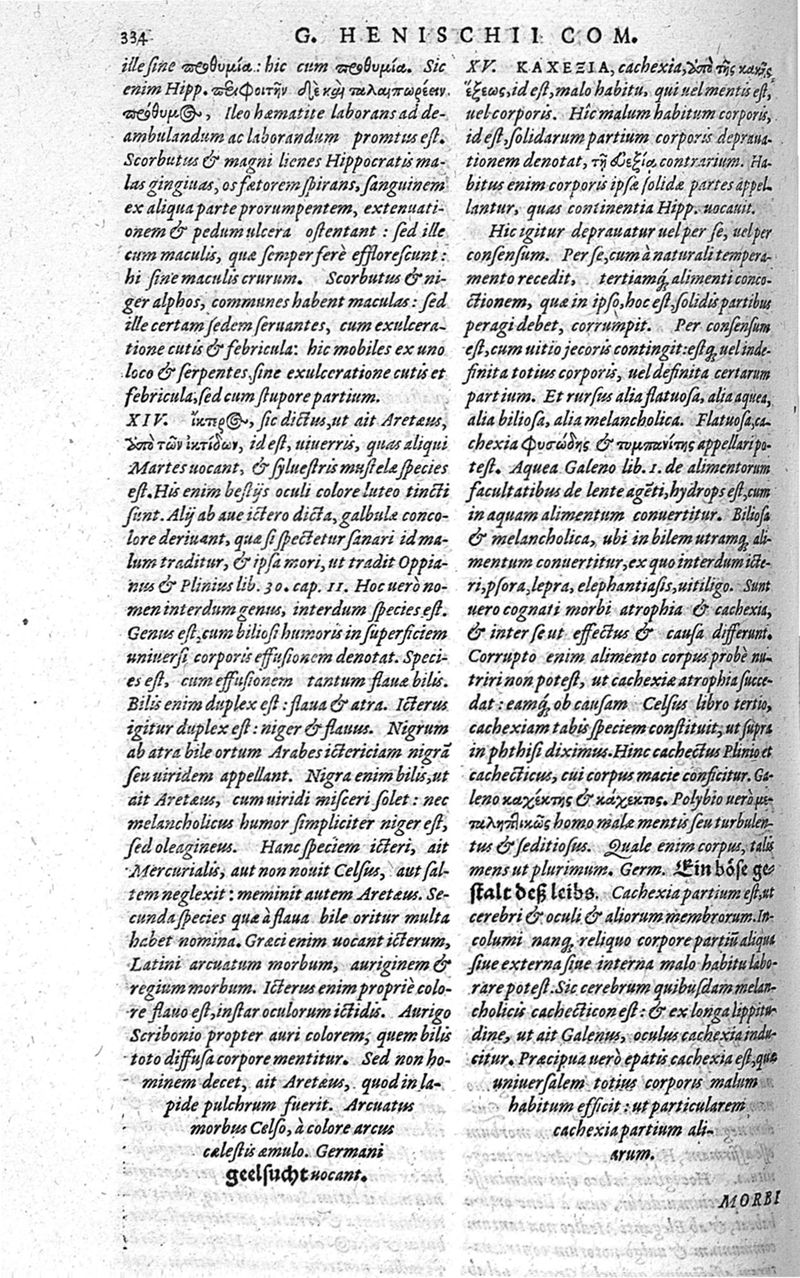 334 G. HENISCHII COM.
ille sine προθυμία: hic cum προθυμία. Sic
enim Hipp. περιφοιτῆν
πρόθυμος, Ileo hæmatite laborans ad de-
ambulandum ac laborandum promtus est.
Scorbutus & magni lienes Hippocratis ma-
las gingiuas, os fætorem spirans, sanguinem
ex aliqua parte prorumpentem, extenuati-
onem & pedum ulcera ostentant: sed ille
cum maculis, quæ semper ferè efflorescunt:
hi sine maculis crurum. Scorbutus & ni-
ger alphos, communes habent maculas: sed
ille certam sedem seruantes, cum exulcera-
tione cutis & febricula: hic mobiles ex uno
loco & serpentes, sine exulceratione cutis et
febricula, sed cum stupore partium.
XIV. ἴκτερος, sic dictus, ut ait Aretæus,
ὑπὸ τῶν ἰκτίδων, id est, uiuerris, quas aliqui
Martes uocant, & syluestris mustelæ species
est. His enim bestijs oculi colore luteo tincti
sunt. Alij ab aue ictero dicta, galbulæ conco-
lore deriuant, quæ si spectetur sanari id ma-
lum traditur, & ipsa mori, ut tradit Oppia-
nus & Plinius lib. 30. cap. 11. Hoc uerò no-
men interdum genus, interdum species est.
Genus est, cum biliosi humoris in superficiem
uniuersi corporis effusionem denotat. Speci-
es est, cum effusionem tantum flauæ bilis.
Bilis enim duplex est: flaua & atra. Icterus
igitur duplex est: niger & flauus. Nigrum
ab atra bile ortum Arabes ictericiam nigrã
seu uiridem appellant. Nigra enim bilis, ut
ait Aretæus, cum uiridi misceri solet: nec
melancholicus humor simpliciter niger est,
sed oleagineus. Hanc speciem icteri, ait
Mercurialis, aut non nouit Celsus, aut sal-
tem neglexit: meminit autem Aretæus. Se-
cunda species quæ à flaua bile oritur multa
habet nomina. Græci enim uocant icterum,
Latini arcuatum morbum, auriginem &
regium morbum. Icterus enim propriè colo-
re flauo est, instar oculorum ictidis. Aurigo
Scribonio propter auri colorem, quem bilis
toto diffusa corpore mentitur. Sed non ho-
minem decet, ait Aretæus, quod in la-
pide pulchrum fuerit. Arcuatus
morbus Celso, à colore arcus
cælestis æmulo. Germani
geelsucht uocant.
XV. ΚΑΧΕΞΙΑ, cachexia, ὑπὸ τῆς κακῆς
ἕξεως, id est, malo habitu, qui uel mentis est,
uel corporis. Hîc malum habitum corporis,
id est, solidarum partium corporis depraua-
tionem denotat, τῇ εὐεξίᾳ contrarium. Ha-
bitus enim corporis ipsæ solidæ partes appel-
lantur, quas continentia Hipp. uocauit.
Hic igitur deprauatur uel per se, uel per
consensum. Per se, cum à naturali tempera-
mento recedit, tertiamq́, alimenti conco-
ctionem, quæ in ipso, hoc est, solidis partibus
peragi debet, corrumpit. Per consensum
est, cum uitio jecoris contingit: estq́, uel inde-
finita totius corporis, uel definita certarum
partium. Et rursus alia flatuosa, alia aquea,
alia biliosa, alia melancholica. Flatuosa, ca-
chexia φυσώδης & τυμπανίτης appellari po-
test. Aquea Galeno lib. 1. de alimentorum
facultatibus de lente agẽti, hydrops est, cum
in aquam alimentum conuertitur. Biliosa
& melancholica, ubi in bilem utramq́, ali-
mentum conuertitur, ex quo interdum icte-
ri, psora, lepra, elephantiasis, uitiligo. Sunt
uero cognati morbi atrophia & cachexia,
& inter se ut effectus & causa differunt.
Corrupto enim alimento corpus probè nu-
triri non potest, ut cachexiæ atrophia succe-
dat: eamq́, ob causam Celsus libro tertio,
cachexiam tabis speciem constituit, ut supra
in phthisi diximus. Hinc cachectus Plinio et
cachecticus, cui corpus macie conficitur. Ga-
leno καχέκτης & κάχεκτος. Polybio uerò με-
ταληπτικῶς homo malæ mentis seu turbulen-
tus & seditiosus. Quale enim corpus, talis
mens ut plurimum. Germ. Ein böse ge-
stalt deß leibs. Cachexia partium est, ut
cerebri & oculi & aliorum membrorum. In-
columi nanq́, reliquo corpore partiũ aliqua
siue externa siue interna malo habitu labo-
rare potest. Sic cerebrum quibusdam melan-
cholicis cachecticon est: & ex longa lippitu-
dine, ut ait Galenus, oculus cachexia indu-
citur. Præcipua uerò epatis cachexia est, quæ
uniuersalem totius corporis malum
habitum efficit: ut particularem
cachexia partium ali-
arum.
MORBI